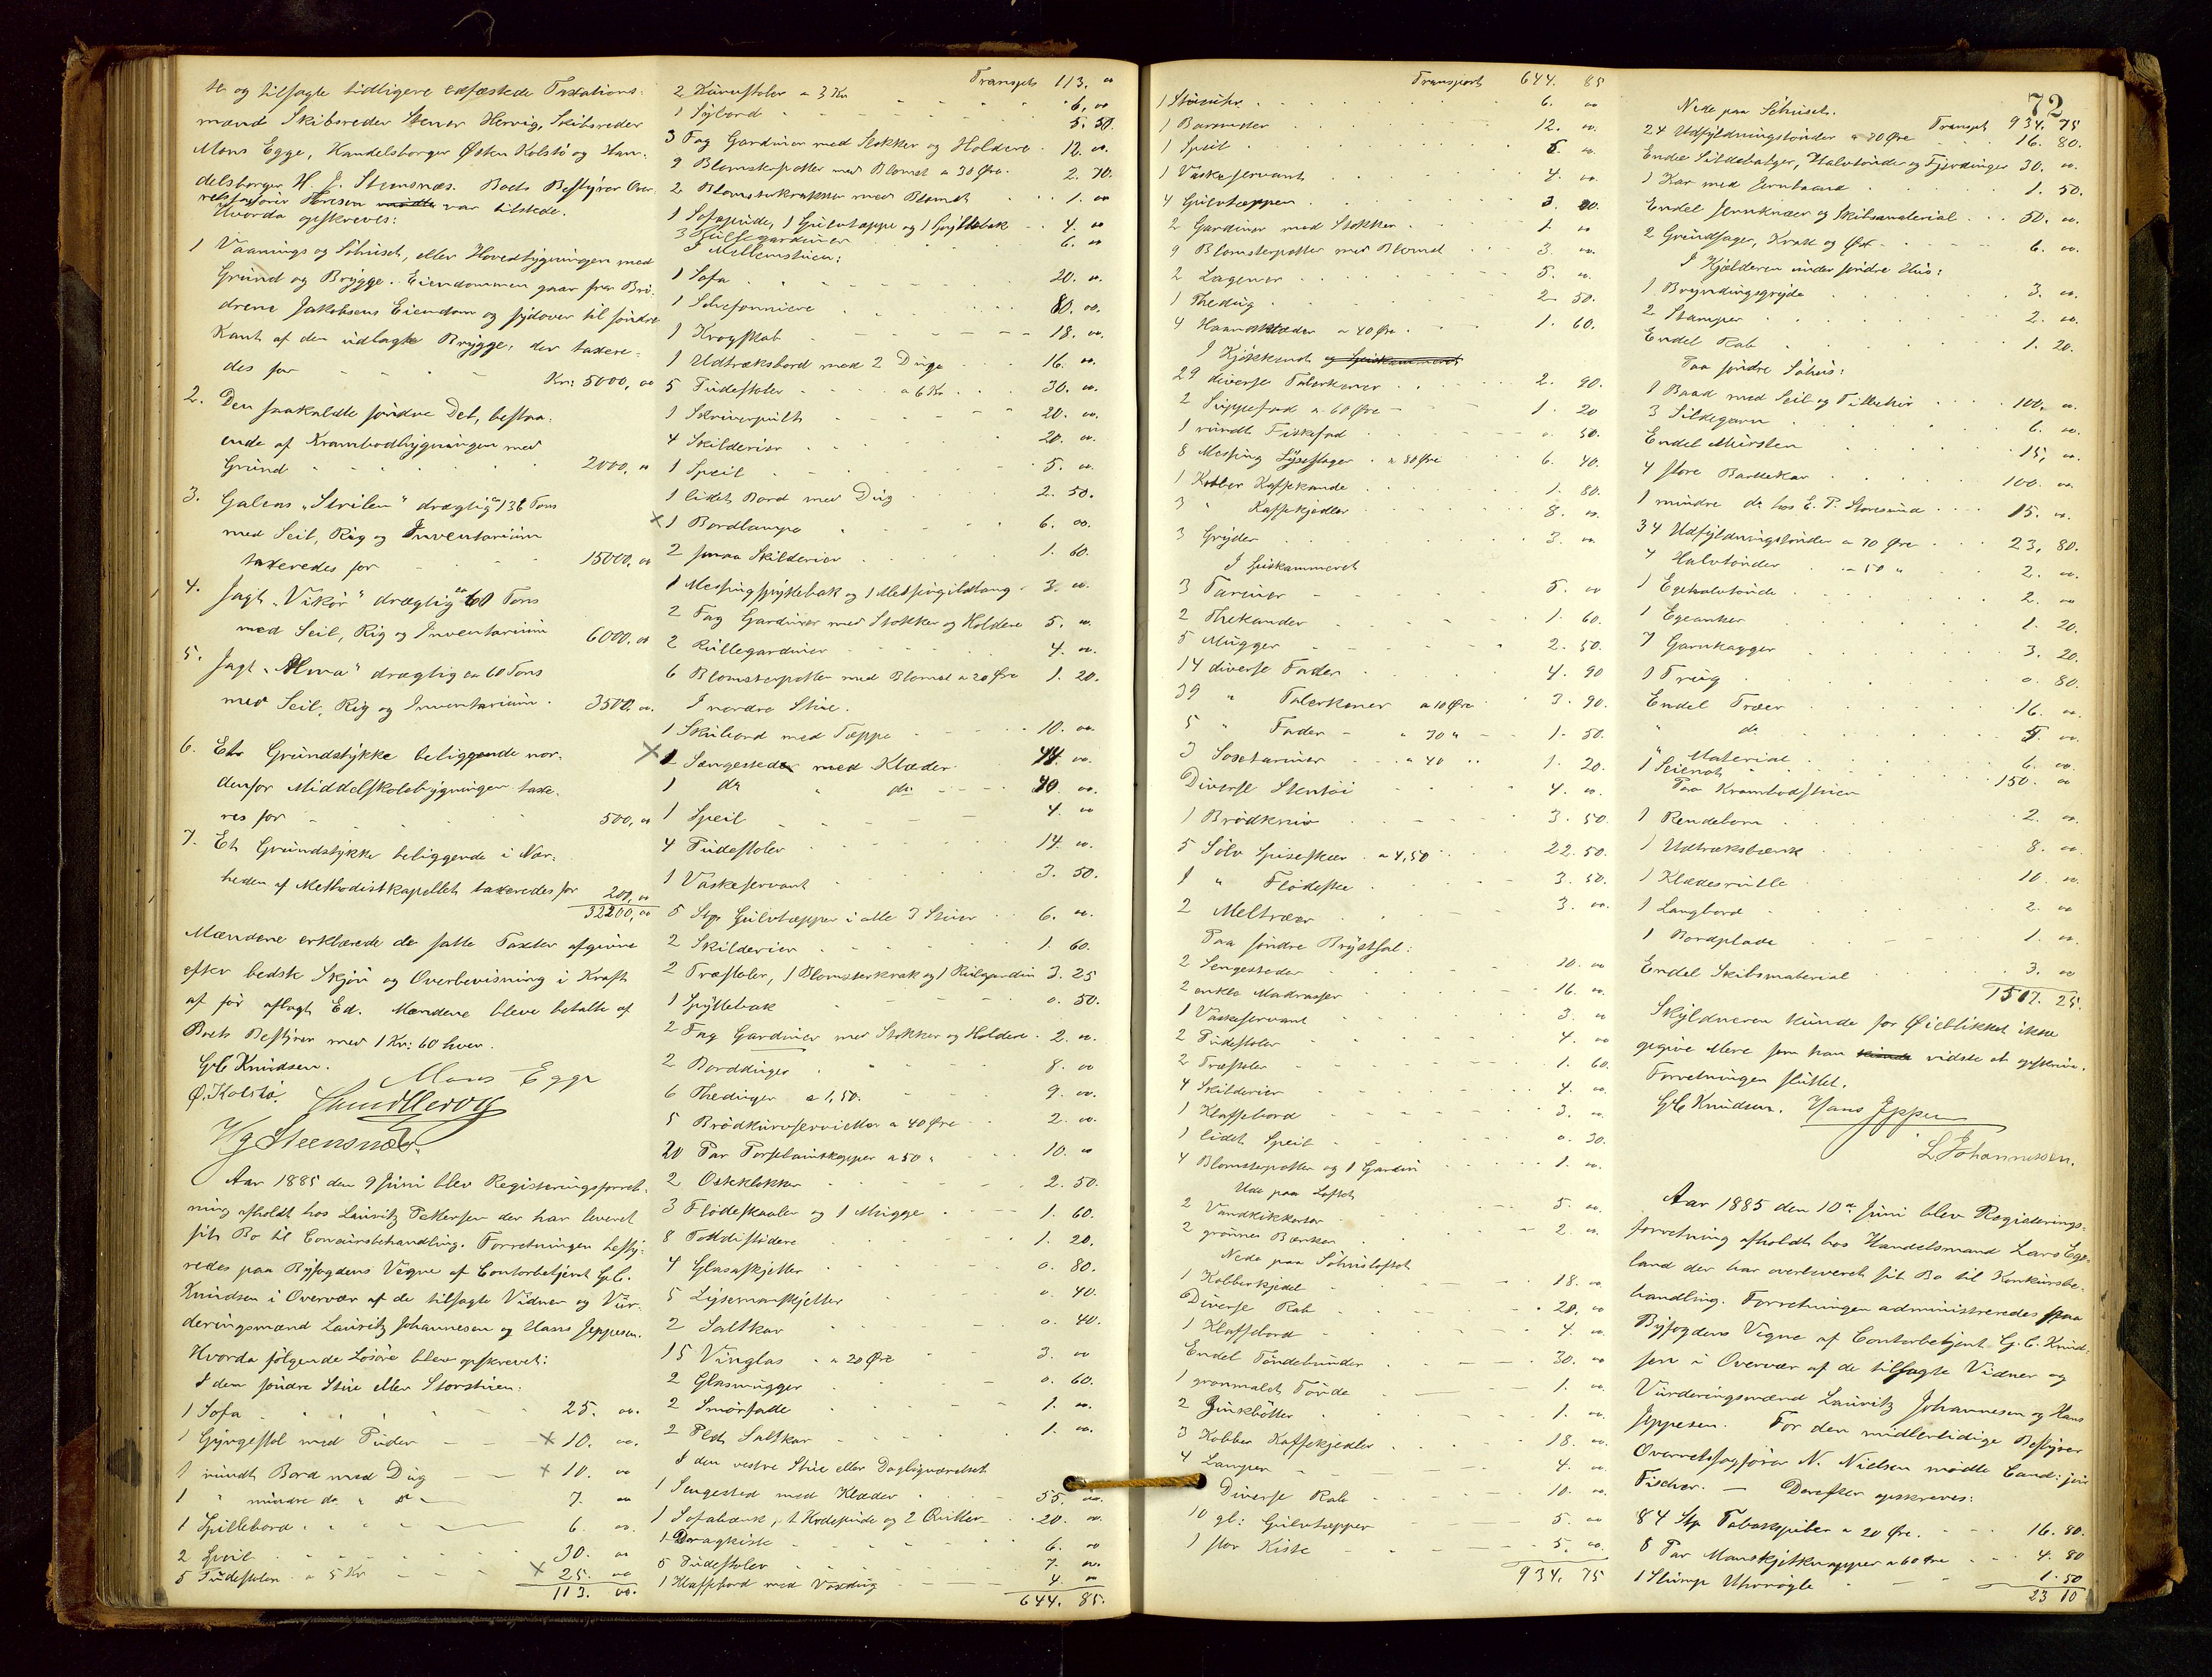 te og tilsagte tidligere edfæstede Taxations-
mænd Skibsreder Stener Hervig, Skibsreder
Mons Egge, Handelsborger Østen Kolstö og Han-
delsborger H. J. Steensnæs. Boets Bestyrer Over-
retssagförer var tilstede.
Hvorda opskreves:
1 Vaanings og Söhuset, eller Hovedbygningen med
Grund og Brygge. Eiendommen gaar fra Brö-
drene Jakobsens Eiendom og sydover til söndre
Kant af den udlagte Brygge, der taxere-
des for Kr: 5000, 00
2. Den saakaldte söndre Del, bestaa-
ende af Krambodbygningen med
Grund 2000, 00
3. Galeas "Strilen" drægtig ca 136 Tons
med Seil, Rig og Inventarium
taxeredes for 15000, 00
4. Jagt "Vikör" drægtig ca 60 Tons
med Seil, Rig og Inventarium 6000, 00
5. Jagt "Alma" drægtig ca 60 Tons
med Seil, Rig og Inventarium. 3500, 00.
6. Et Grundstykke beliggende nor-
denfor Middelskolebygningen taxe-
res for 500, 00
7. Et Grundstykke beliggende i Nær-
heden af Methodistkapellet taxeredes for 200, 00
32200, 00
Mændene erklærede de satte Taxter afgivne
efter bedste Skjön og Overbevisning i Kraft
af för aflagt Ed. Mændene bleve betalte af
Boets Bestyrer med 1 Kr: 60 hver.
G. C. Knudsen.
Mons Egge
Ö. Kolstö.
H J Steensnæs.
Aar 1885 den 9 Juni blev Registreringsforret-
ning afholdt hos Lauritz Pettersen der har leveret
sit Bo til Concursbehandling. Forretningen besty-
redes paa Byfogdens Vegne af Contorbetjent G. C.
Knudsen i Overvær af de tilsagte Vidner og Vur-
deringsmænd Lauritz Johannesen og Hans Jeppesen.
Hvorda fölgende Lösöre blev opskrevet:
I den söndre Stue eller Storstuen:
1 Sofa 25. 00.
1 Gyngestol med Puder × 10. 00.
1 rundt Bord med Dug × 10. 00
1 " mindre do " do 7. 00
1 Spillebord 6. 00.
2 Speil 30. 00
5 Pudestolen a 5 Kr × 25. 00
113. 00.
Transpt 113. 00
2 Kurvestoler a 3 Kr 6. 00
1 Sybord 5. 50.
3 Fag Gardiner med Stokker og Holdere 12. 00.
9 Blomsterpotter med Blomst a 30 Öre 2. 70.
2 Blomsterkrukker med Blomst 1. 00
1 Sofapude, 1 Gulvtæppe og 1 Spyttebak 4. 00
3 Rullegardiner 6. 00
I Mellemstuen:
1 Sofa 20. 00.
1 Scheffoniere 80. 00.
1 Krogskab 18. 00.
1 Udtræksbord med 2 Duge 16. 00.
5 Pudestoler a 6 Kr 30. 00.
1 Skriverpult 20. 00.
4 Skilderier 20. 00.
1 Speil 5. 00.
1 lidet Bord med Dug 2. 50.
× 1 Bordlampe 6. 00.
2 smaa Skilderier 1. 60.
1 Messingspyttebak og 1 Messingildtang 3. 00.
2 Fag Gardiner med Stokker og Holdere 5. 00.
2 Rullegardiner 4. 00.
6 Blomsterpotter med Blomst a 20 Öre 1. 20.
I nordre Stue.
1 Skubord med Tæppe 10. 00.
× 1 Sengested med Klæder 44. 00.
1 do " do 40. 00.
1 Speil 4. 00
4 Pudestoler 14. 00.
1 Vaskeservant 3. 50.
5 Stp Gulvtæpper i alle 3 Stuer 6. 00.
2 Skilderier 1. 60.
2 Træstoler, 1 Blomsterkrak og 1 Rulgardin 3. 25
1 Spyttebak 0. 50.
2 Fag Gardiner med Stokker og Holdere 2. 00.
2 Bordduger 8. 00
6 Theduger a 1,50. 9. 00.
5 Brödkurvservietter a 40 Öre 2. 00.
20 Par Porselainskopper a 50 " 10. 00
2 Osteklokker 2. 50.
3 Flödeskaaler og 1 Mugge 1. 60.
8 Toddistödere 1. 20.
4 Glasaskjetter 0. 80.
5 Lysemanskjetter 0. 40.
2 Saltkar 0. 40.
15 Vinglas a 20 Öre 3. 00
2 Glasmugger 0. 60.
2 Smörfade 1. 00.
2 Pleds Saltkar 1. 00.
I den vestre Stue eller Dagligværelset
1 Sengested med Klæder 55. 00.
1 Sofabænk, 1 Hodepude og 2 Qvilter 20. 00.
1 Dragkiste 6. 00
5 Pudestoler 7. 00.
1 Klaffebord med Voxdug 4. 00
644. 85.
Transport 644. 85
1 Stueuhr 6. 00
1 Barometer 12. 00.
1 Speil 5. 00.
1 Vaskeservant 4. 00.
4 Gulvtæpper 3. 20.
2 Gardiner med Stokker 1. 00
9 Blomsterpotter med Blomst 3. 00.
2 Lagener 5. 00.
1 Thedug 2 50.
4 Haandklæder a 40 Öre 1. 60.
I Kjökkenet og Spiskammeret
29 diverse Talerkener 2. 90.
2 Suppefad a 60 Öre 1. 20
1 rundt Fiskefad 0. 50.
8 Messing Lysestager a 80 Öre 6. 40.
1 Kobber Kaffekande 1. 80.
3 " Kaffekjedler 8. 00.
3 Gryder 3. 00.
I Spiskammeret
3 Tariner 5. 00
2 Thekander 1. 60.
5 Mugger 2. 50.
14 diverse Fader 4. 90
39 " Talerkener a 10 Öre 3. 90.
5 " Fader a 30 " 1. 50.
3 Sosetariner a 40 " 1. 20.
Diverse Stentöi 4. 00.
1 Brödkniv 3. 50.
5 Sölv Spiseskeer a 4,50 22. 50.
1 " Flödeske 3. 50.
2 Meltræer 3. 00.
Paa söndre Brystsal:
2 Sengesteder 10. 00
2 enkle Madrasser 16. 00.
1 Vaskeservant 3. 00
2 Pudestoler 4. 00
2 Træstoler 1. 60.
4 Skilderier 4. 00.
1 Klaffebord 3. 00.
1 lidet Speil 0. 30.
4 Blomsterpotter og 1 Gardin 1. 00.
Ude paa Loftet
2 Vandkikkerter 5. 00.
2 grönnes Bænker 2. 00.
Nede paa Söhusloftet
1 Kobberkjedel 18. 00
Diverse Rab 20. 00
1 Klaffebord 4. 00.
Endel Töndebunder 30. 00
1 grönmalet Tönde 1. 00.
2 Zinkbötter 1. 00.
3 Kobber Kaffekjedler 18. 00
4 Lamper 4. 00.
Diverse Rab 10. 00.
10 gl: Gulvtæpper 5. 00
1 stor Kiste 5. 00.
934. 75
72
Nede paa Söhuset. Transpt 934. 75
24 Udfyldningstönder a 70 Öre 16. 80.
Endel Sildebalger, Halvtönder og Fjerdinger 30. 00.
1 Kar med Jernbaand 1. 50.
Endel Jernknæer og Skibsmaterial 50. 00.
2 Grundsager, Krak og Öx 6. 00.
I Kjælderen under söndre Hus:
1 Brændingsgryde 3. 00.
2 Stamper 2. 00.
Endel Rab 1. 20.
Paa söndre Söhus:
1 Baad med Seil og Tilbehör 100. 00.
3 Sildegarn 6. 00.
Endel Mursten 15, 00.
4 store Barkekar 100. 00
1 mindre do hos E. P. Storesund 15. 00.
34 Udfyldningstönder a 70 Öre 23, 80.
4 Halvtönder a 50 " 2. 00.
1 Egehalvtönde 2. 00
1 Egeanker 1. 20.
7 Garnkagger 3. 20.
1 Trug 0. 80.
Endel Træer 16. 00.
" do 5. 00.
" Material 6. 00.
150. 00
Paa Krambodstuen
1 Rendebom 2. 00.
1 Udtræksbænk 8. 00.
1 Klædesrulle 10. 00.
1 Langbord 2. 00
1 Bordplade 1. 00.
Endel Skibsmaterial 3. 00
1517. 25.
Skyldneren kunde for Öieblikket ikke
opgive Mere som han vidste at opskrive.
Forretningen sluttet.
G. C. Knudsen. Hans Jeppesen
L Johannessen.
Aar 1885 den 10de Juni blev Registrerings-
forretning afholdt hos Handelsmand Lars Ege-
land der har overleveret sit Bo til Konkursbe-
handling. Forretningen administreredes paa
Byfogdens Vegne af Contorbetjent G. C. Knud-
sen i Overvær af de tilsagte Vidner og
Vurderingsmænd Lauritz Johannesen og Hans
Jeppesen. For den midlertidige Bestyrer
Overretssagförer N. Nielsen mödte Cand: juris
Fischer. — Derefter opskreves:
84 Stp Tobakspiber a 20 Öre. 16. 80.
8 Par Manskjetknapper a 60 Öre 4. 80
1 Slump Uhrnögle 1. 50
23 10